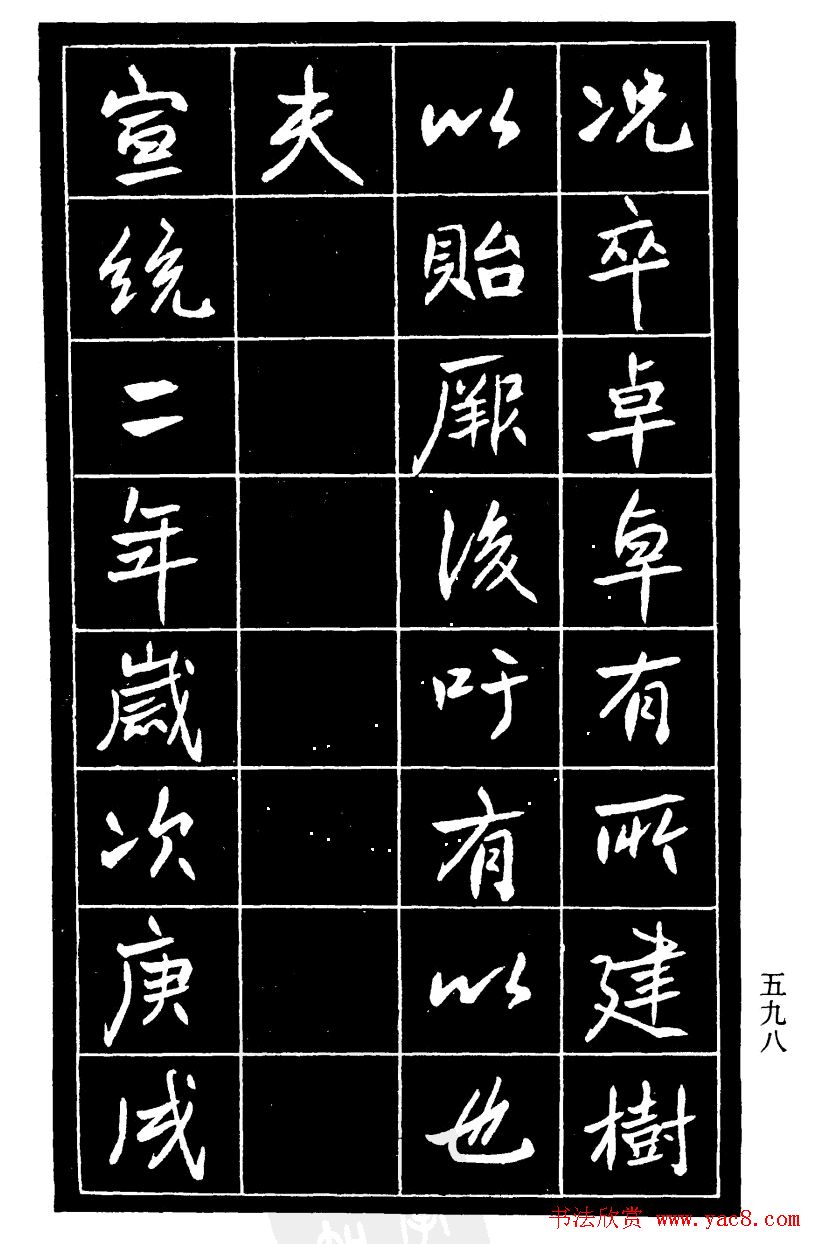 况卒卓卓有所建樹
以貽厥後吁有以也
夫
宣統二年歲次庚戌
五九八
书法欣赏 www.yac8.com